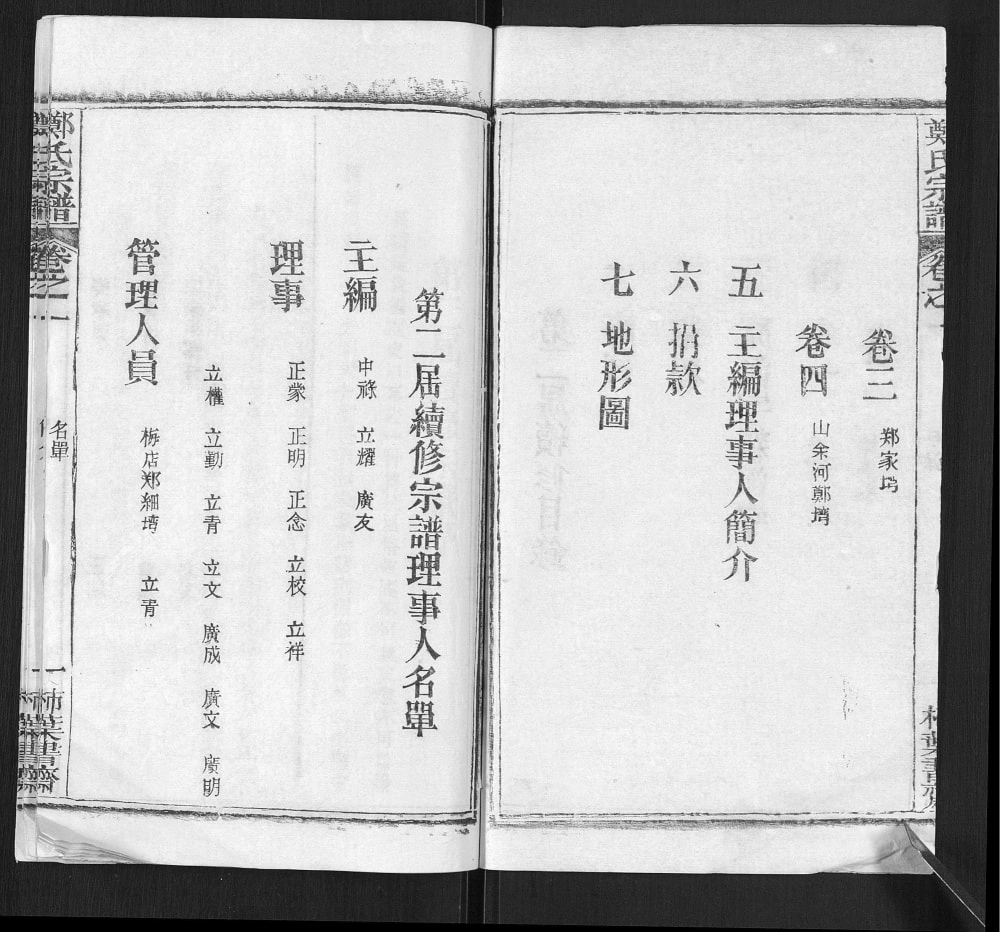 鄭氏宗譜
卷之一
卷三 郑家塆
卷四 山余河鄭塆
五 主編理事人簡介
六 捐款
七 地形圖
第二届續修宗譜理事人名單
主編 中祿 立耀 廣友
理事 正蒙 正明 正念 立校 立祥
立權 立勤 立青 立文 廣成 廣文 廣明
管理人員 梅店郑細塆 立青
鄭氏宗譜
卷之一
名單
一
柿葉書齋